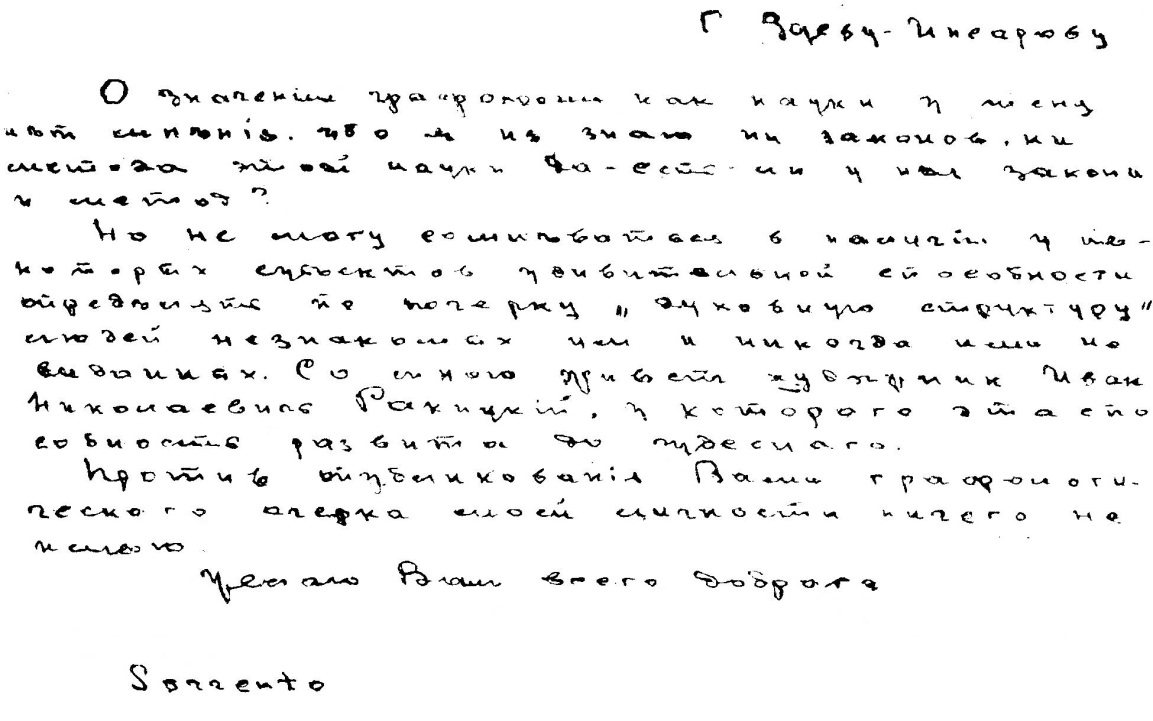 Г Зуеву-Инсарову
О значении графологии как науки у меня
нѣт мнѣнія. ибо я не знаю ни законов, ни
метода этой науки Да-есть-ли у нея законы
и метод?
Но не могу сомневаться в наличіи у не-
которых субъектов удивительной способности
определять по почерку „духовную структуру"
людей незнакомых им и никогда ими не
виданных. Со мною живет художник Иван
Николаевич Ракицкій, у которого эта спо
собность развита до чудесного.
Против опубликованія Вами графологи-
ческого очерка моей личности ничего не
имею.
Желаю Вам всего доброго
Sorrento